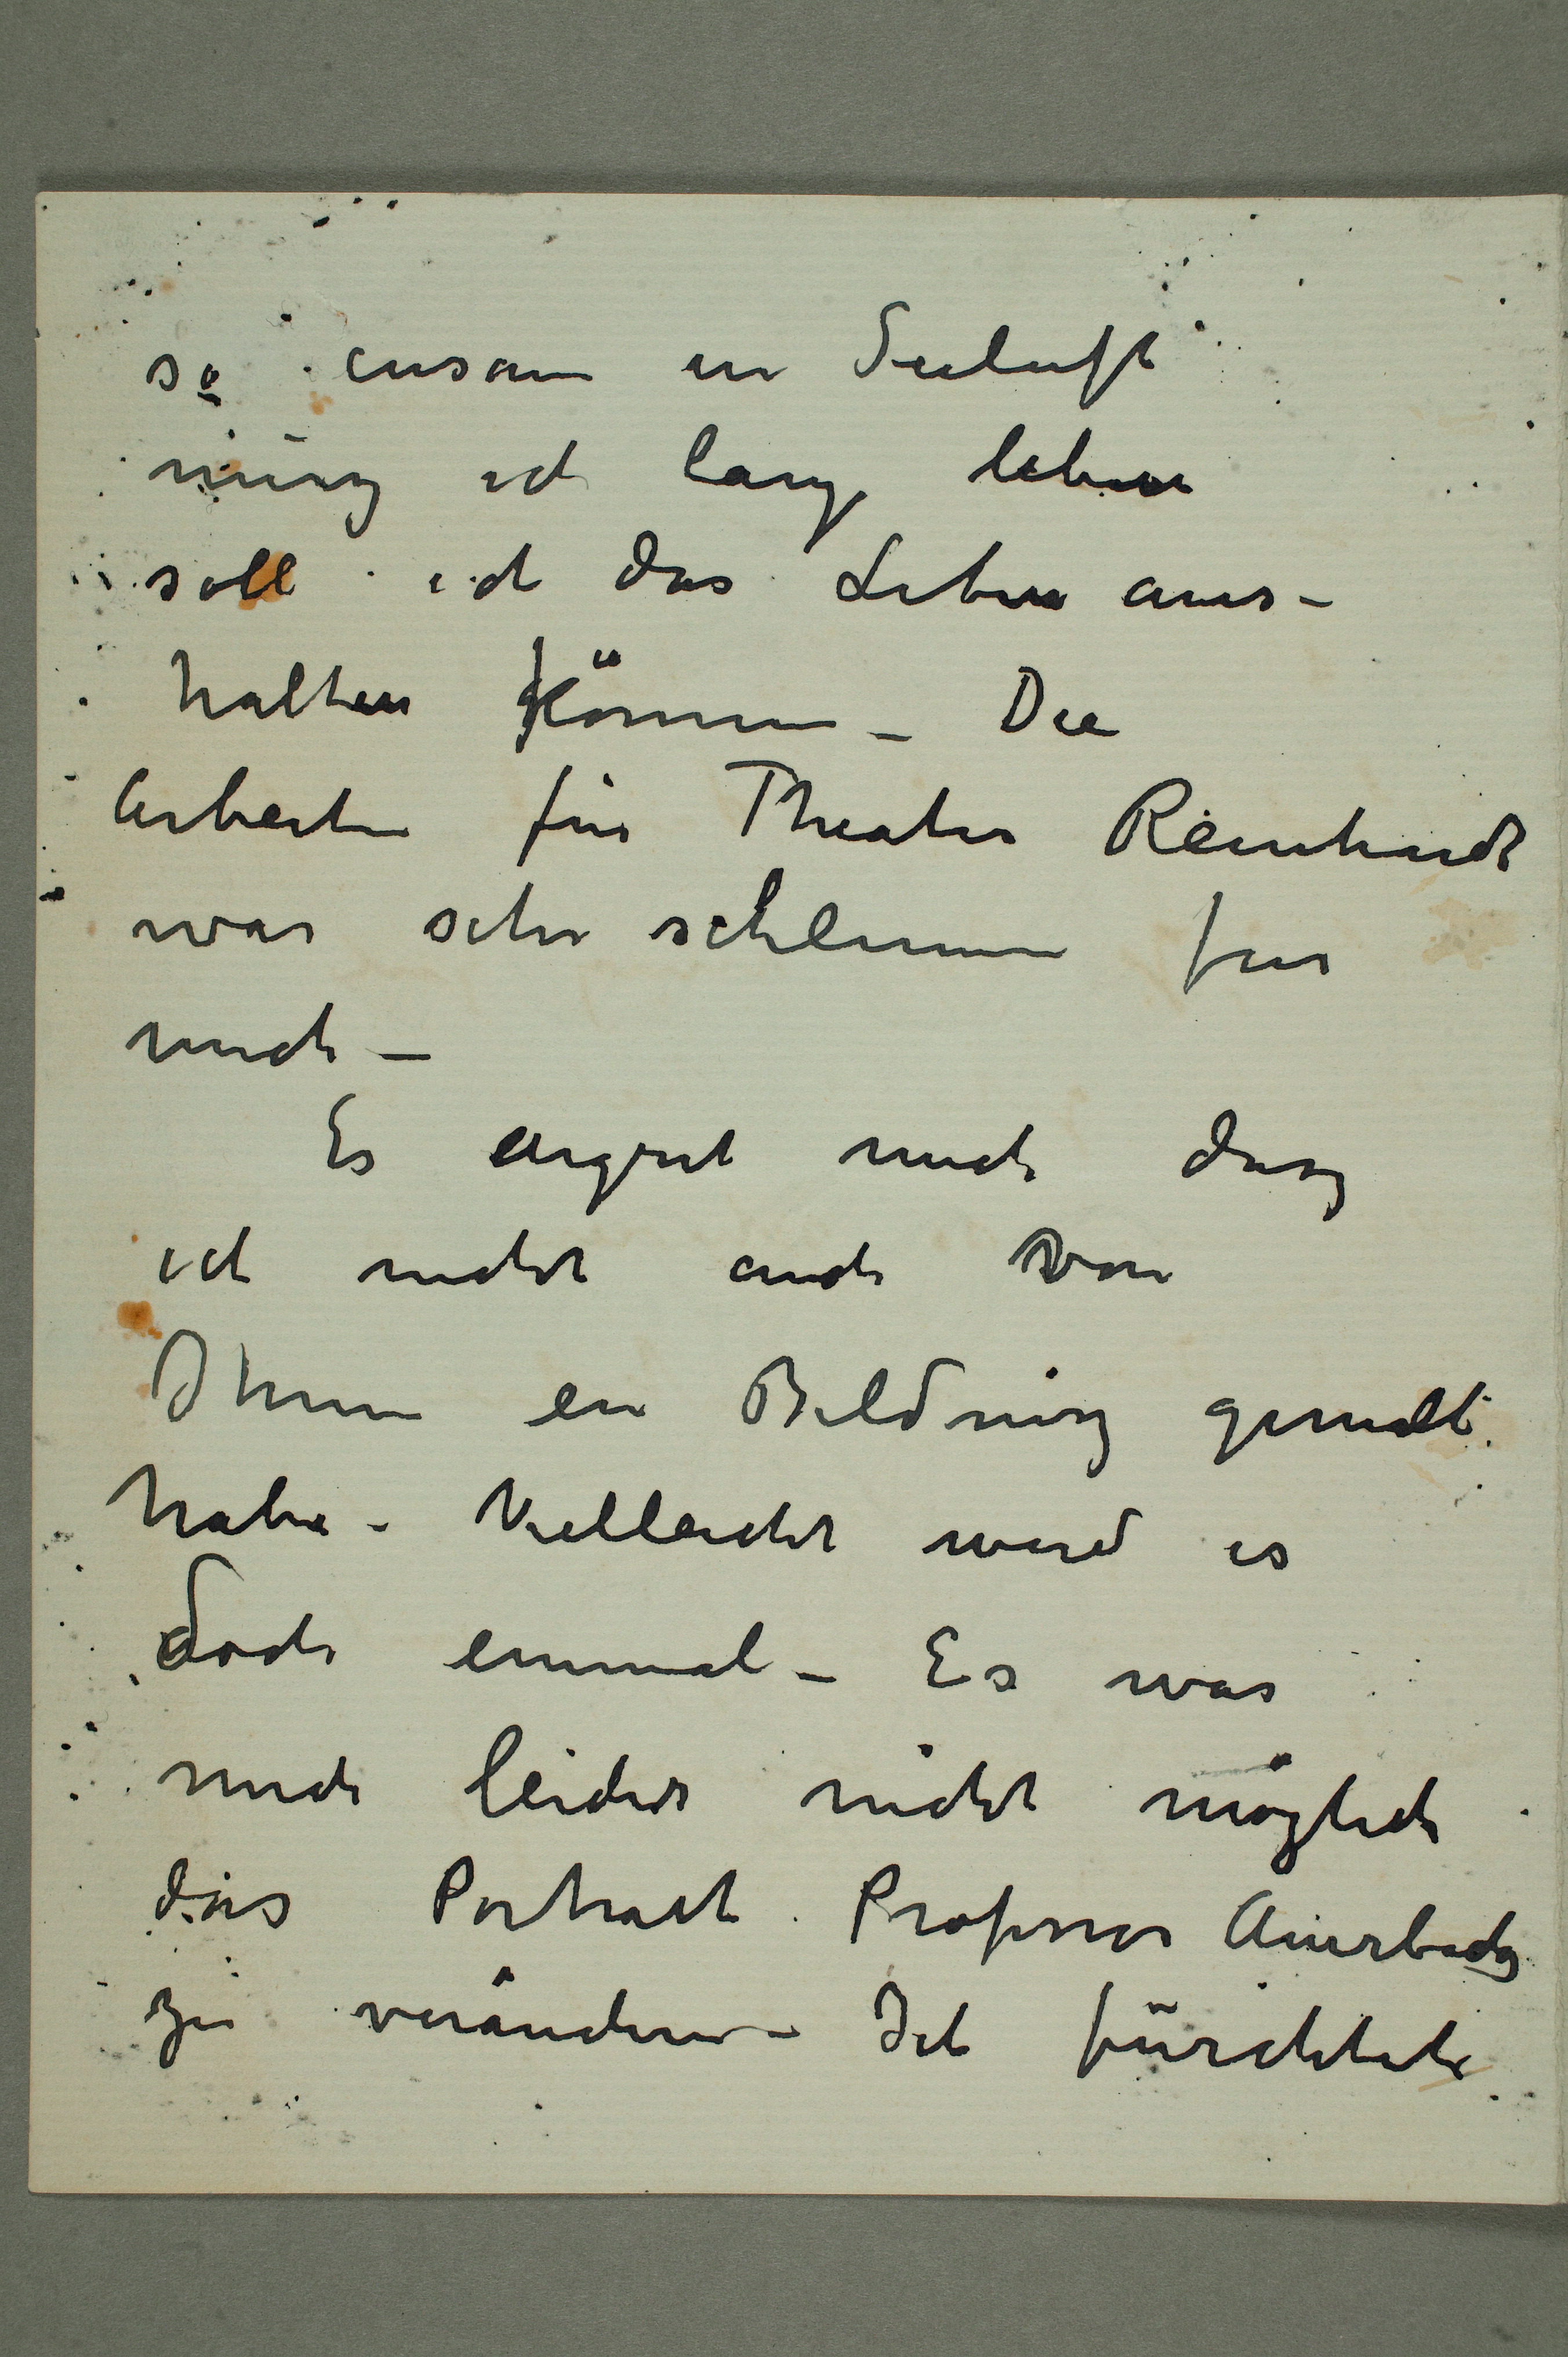 so einsam in Seeluft
musz ich lang leben
soll ich das Leben aus-
halten können – Die
Arbeiten für Theater Reinhardt
war sehr schlimm für
mich –
Es ärgert mich dasz
ich nicht auch von
Ihnen ein Bildnisz gemalt
habe – Vielleicht wird es
doch einmal – Es war
mich leider nicht möglich
das Portrait Professor Auerbachs
zu verändern – Ich fürchtete